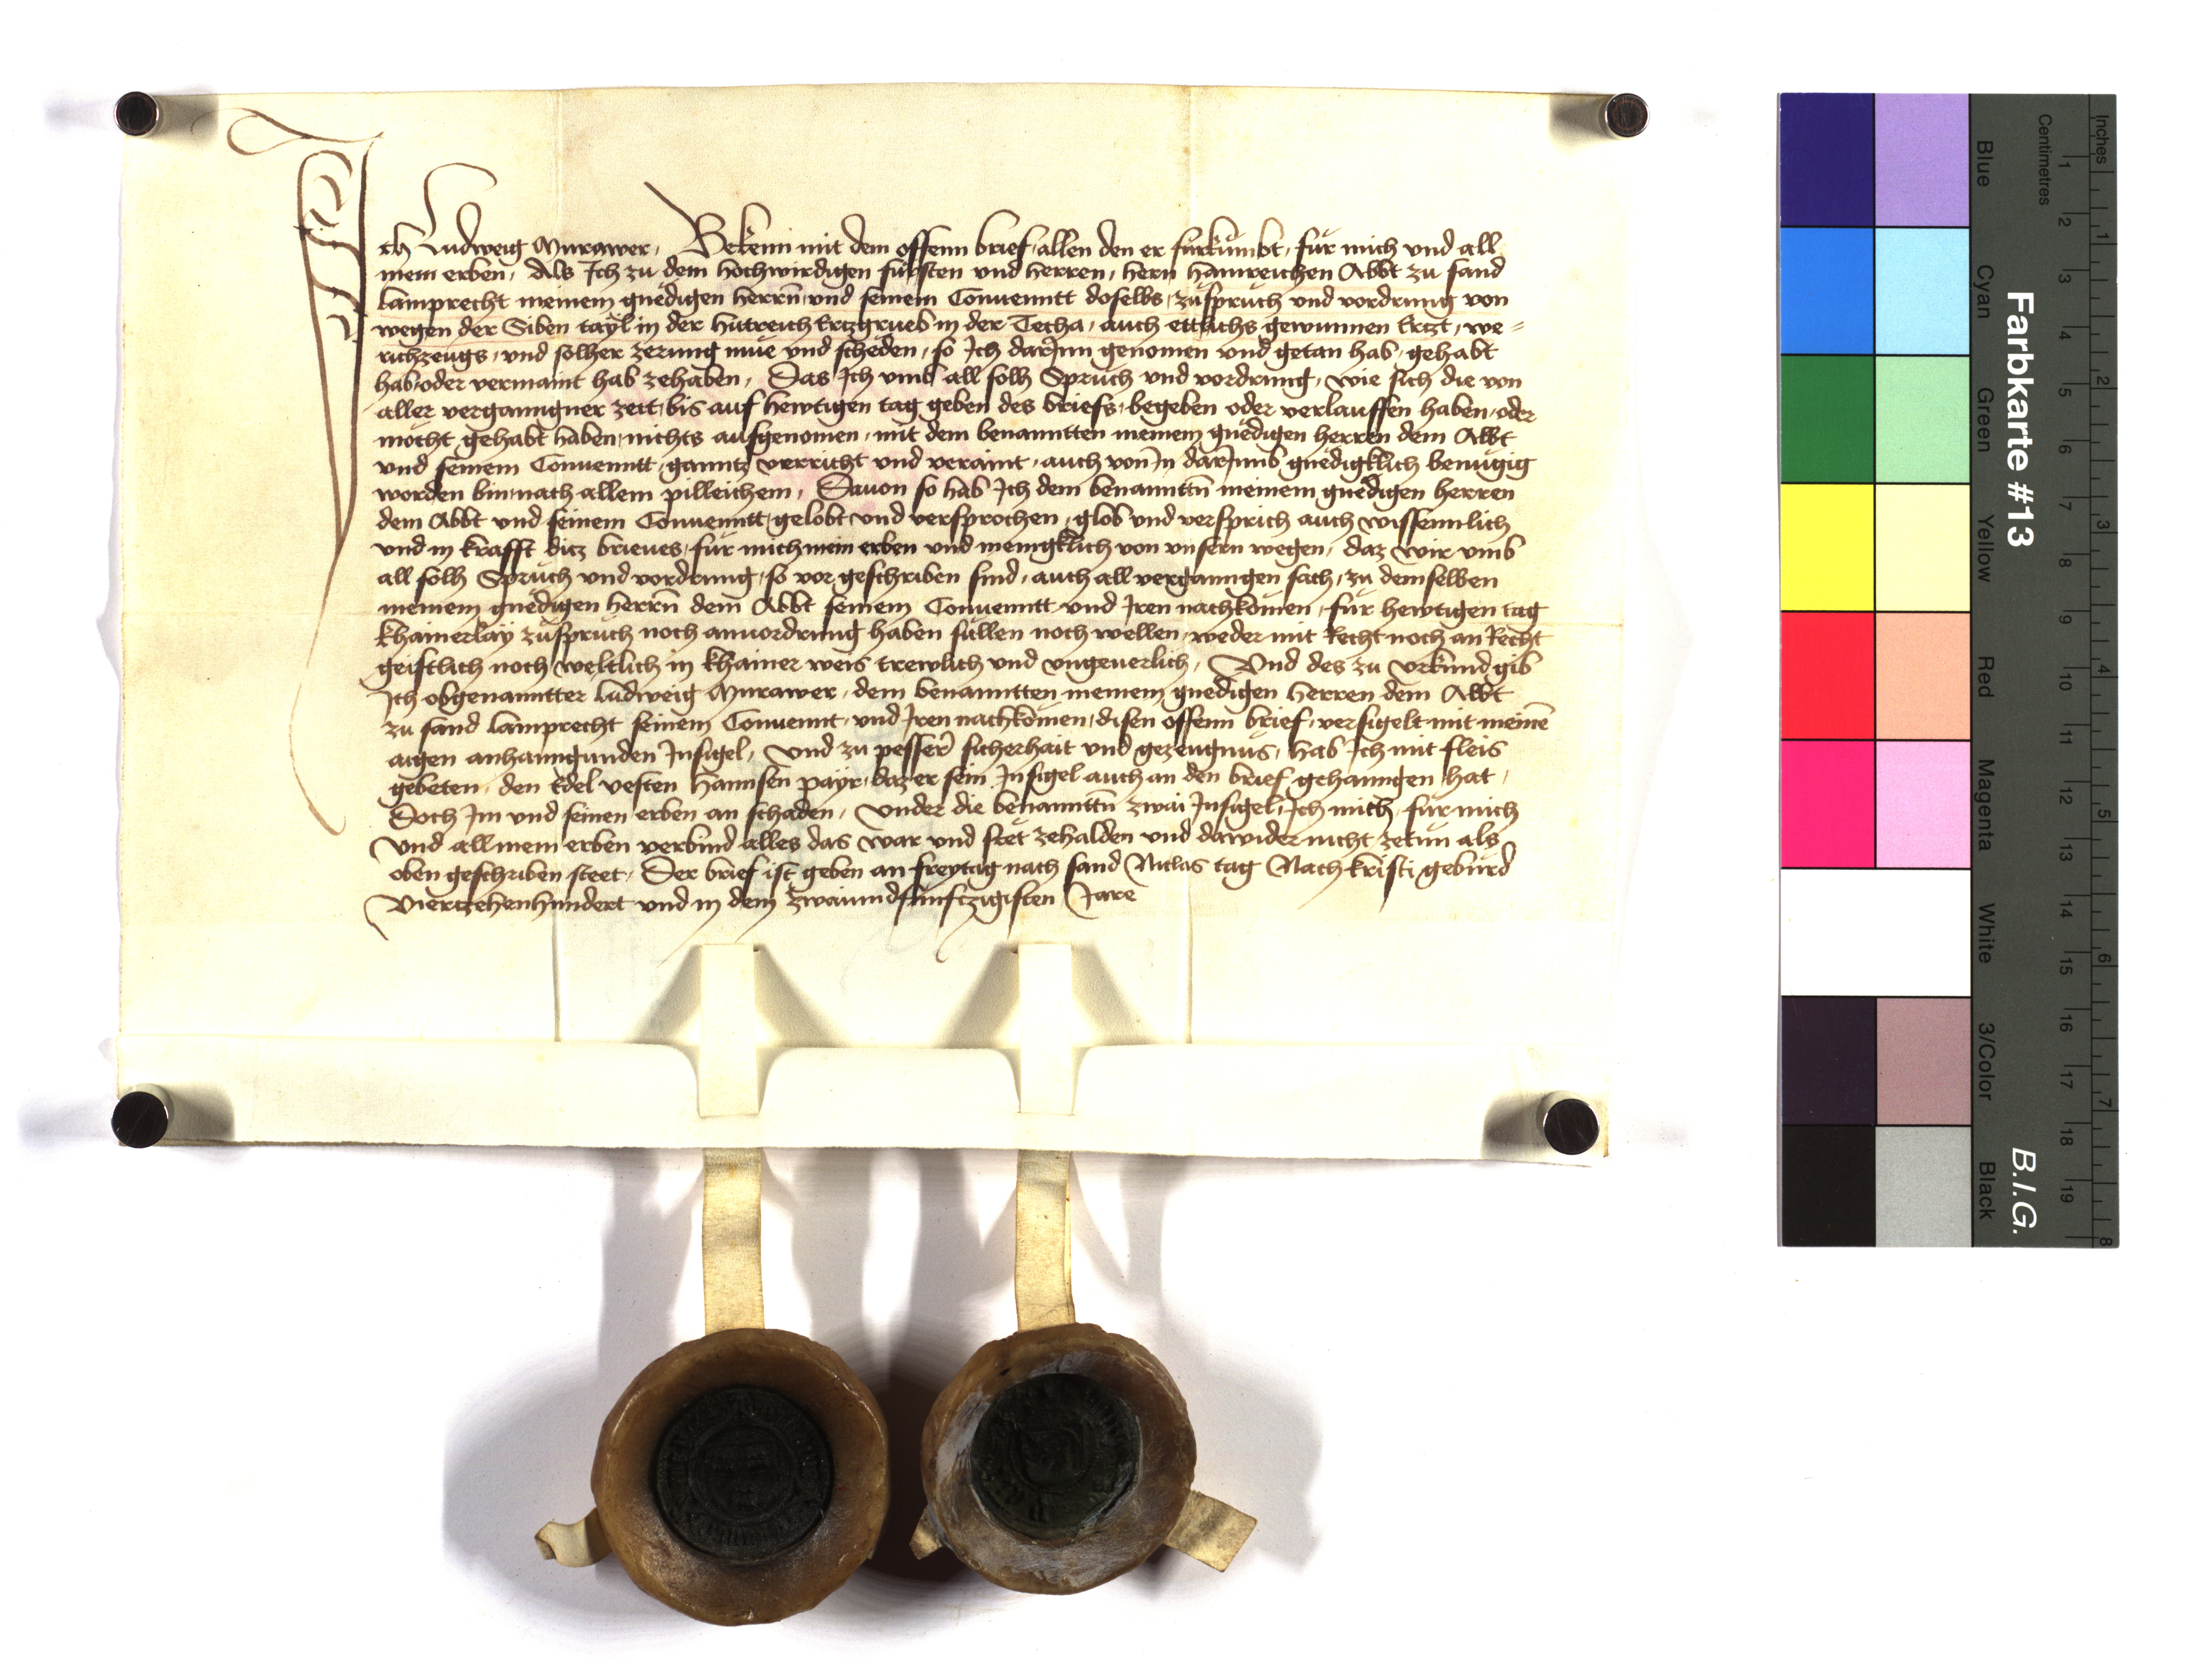 Ich Ludweig Murawer, Bekenn mit dem offenn brief, allen den er fürkümbt, für mich und all
mein erben, Als Ich zu dem hochwirdigen fürsten und herren, hern hainreichen Abbt zu sand
Lamprecht meinem gnedigen herrn und seinem Conuenntt doselbs, züspruch und vordrung von
wegen der Siben tayl in der hutreich Ertzgrueb in der Zecha, auch ettlichs gewunnen Ertzt, we=
richzeugs, und solher zerung müe und scheden, so Ich darInn genomen und getan hab, gehabt
hab, oder vermaint hab zehaben, Das Ich umb all solh Spruch und vordrung, wie sich die von
aller verganngner zeit, bis auf hewtigen tag geben des briefs, begeben oder verlauffen haben, oder
möcht gehabt haben, nichts ausgenomen, mit dem benanntten meinem gnedigen herren dem Abbt
und seinem Conuenntt, ganntz verricht und veraint, auch von In darJumb gnedigklich benügig
worden bin, nach allem pilleichem, Dauon so hab Ich dem benanntn meinem gnedigen herren
dem Abbt und seinem Conuenntt, gelobt und versprochen, glob und versprich auch wissenntlich
und in krafft ditz brieues, für mich mein erben und menigklich von unsern wegen, daz wir umb
all solh Spruch und vordrung, so vor geschriben sind, auch all verganngen sach, zu demselben
meinem gnedigen herrn dem Abbt seinem Conuenntt und Iren nachkomen, für hewtigen tag
khainerlay züspruch noch anuordrung haben süllen noch wellen, weder mit Recht noch an Recht
geistlich noch weltlich in khainer weis trewlich und ungeuerlich, Und des zu Urkund gib
Ich obgenanntter Ludweig Murawer, dem benanntten meinem gnedigen herren dem Abbt
zu sand Lamprecht seinem Conuennt, und Iren nachkömen, disen offenn brief, versigelt mit meine
aigen anhanngunden Insigel, und zu pesser sicherhait und gezeugnüs, hab Ich mit fleis
gebeten, den Edel vesten Hannsen payr, daz er sein Insigel auch an den brief gehanngen hat,
Doch Im und seinen erben an schaden, Under die benanntn zwai Insigel, Ich mich, für mich
Und all mein erben verbind alles das war und stet zehalden und dawider nicht zetün als
oben geschriben steet, Der brief ist geben an freytag nach sand Niclas tag Nach kristi gebürd
Viertzehenhundert und in dem zwaiundfünftzigisten Jare
Farbkarte #13
B.I.G.
Inches
1 2 3 4 5 6 7 8
Centimetres
1 2 3 4 5 6 7 8 9 10 11 12 13 14 15 16 17 18 19
Blue
Cyan
Green
Yellow
Red
Magenta
White
3/Color
Black